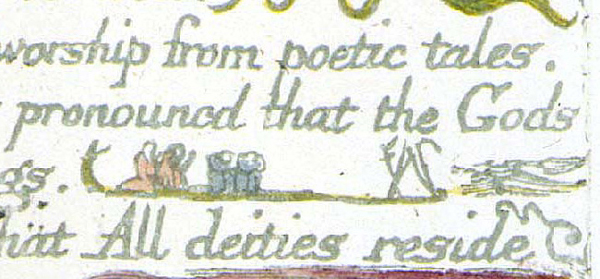 worship from poetic tales.
pronouncd that the Gods
gs.
hat All deities reside